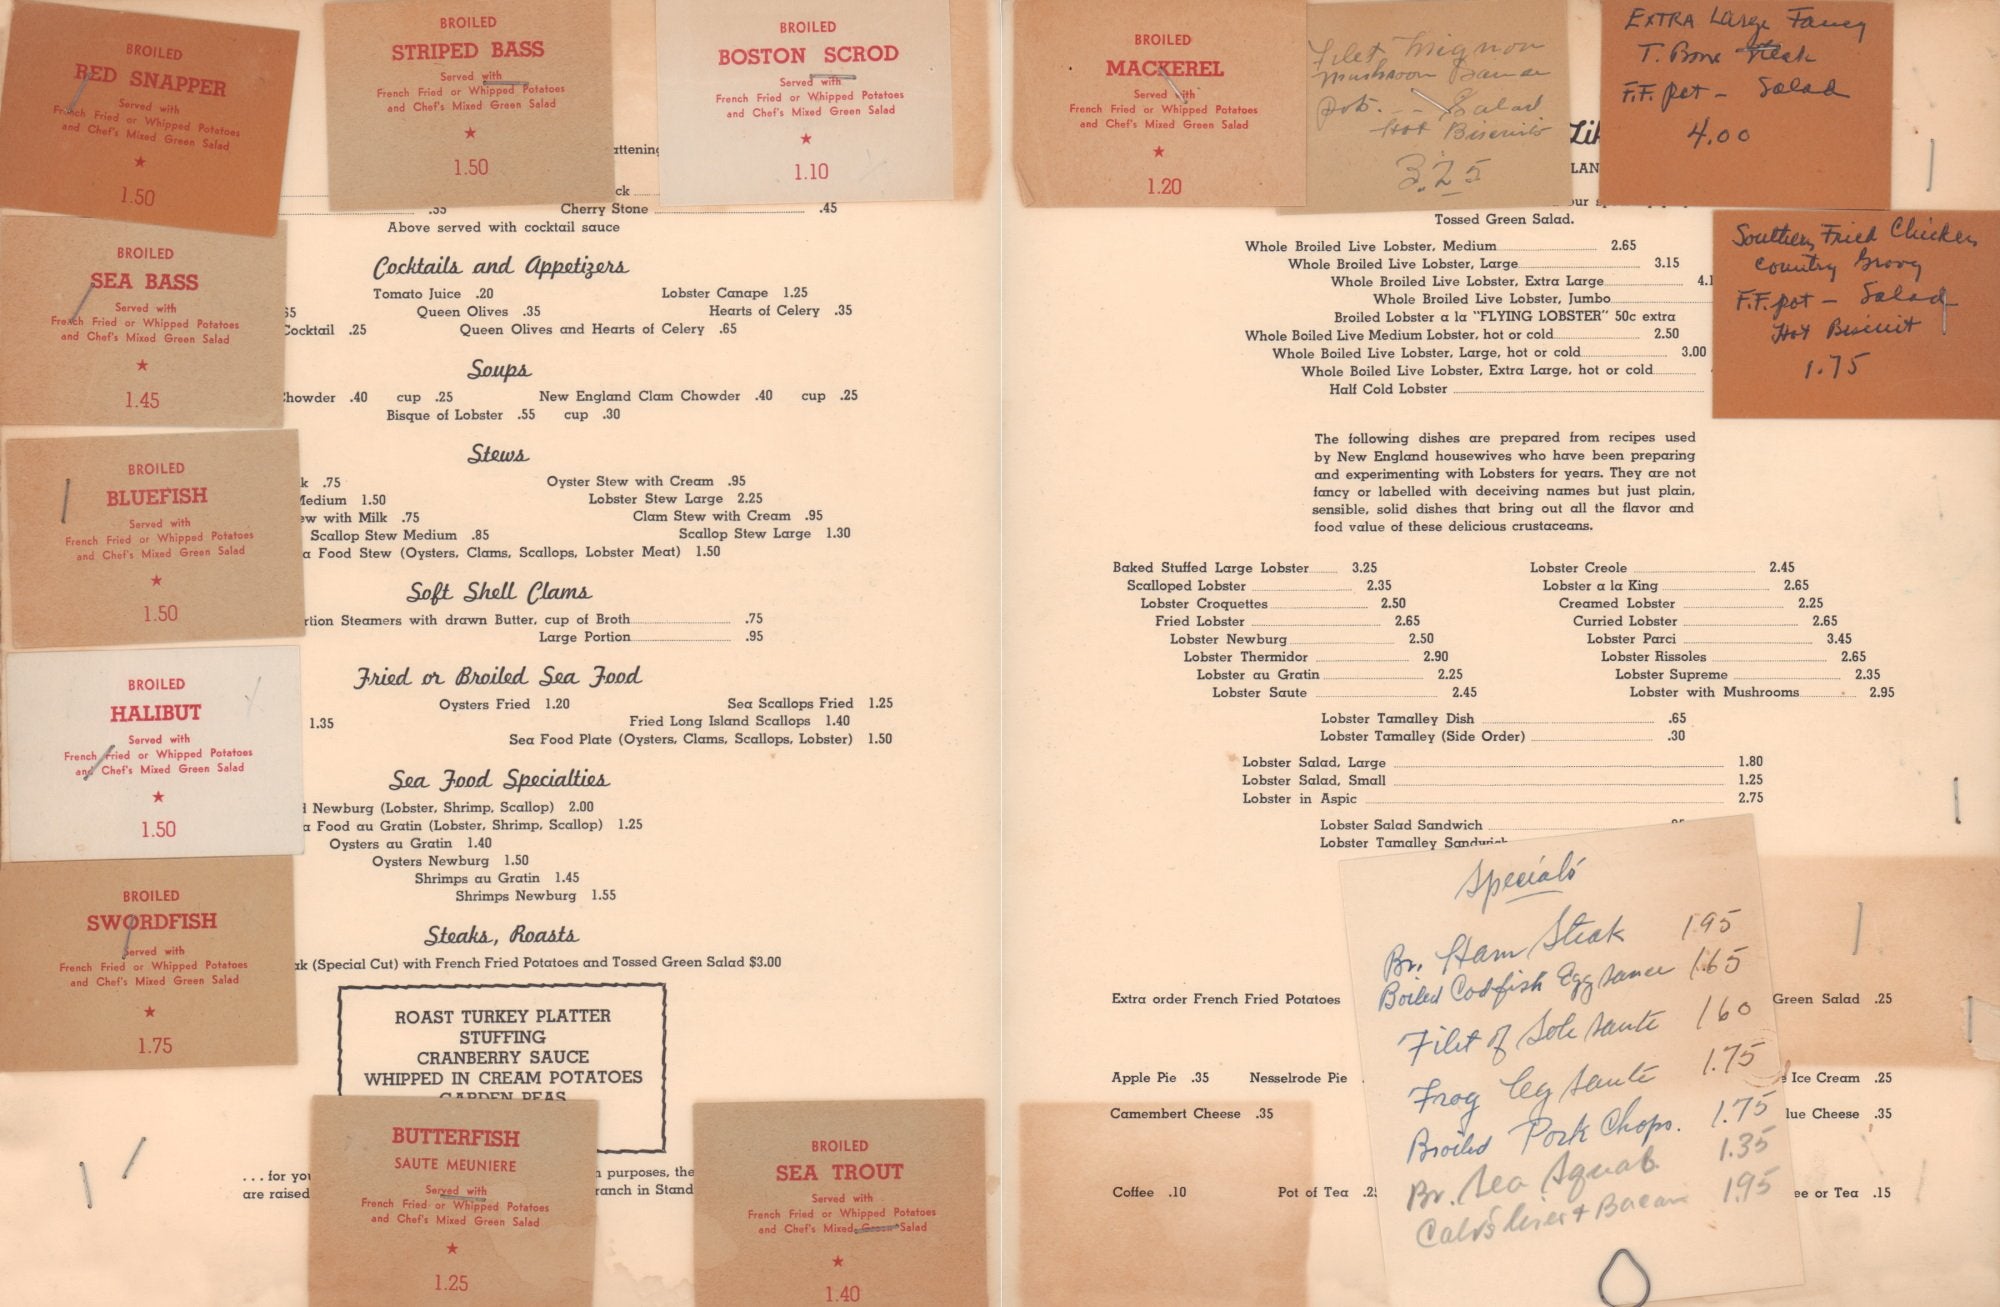 BROILED
RED SNAPPER
Served with
French Fried or Whipped Potatoes
and Chef's Mixed Green Salad
★
1.50
BROILED
STRIPED BASS
Served with
French Fried or Whipped Potatoes
and Chef's Mixed Green Salad
★
1.50
BROILED
BOSTON SCROD
Served with
French Fried or Whipped Potatoes
and Chef's Mixed Green Salad
★
1.10
BROILED
SEA BASS
Served with
French Fried or Whipped Potatoes
and Chef's Mixed Green Salad
★
1.45
BROILED
BLUEFISH
Served with
French Fried or Whipped Potatoes
and Chef's Mixed Green Salad
★
1.50
BROILED
HALIBUT
Served with
French Fried or Whipped Potatoes
and Chef's Mixed Green Salad
★
1.50
BROILED
SWORDFISH
Served with
French Fried or Whipped Potatoes
and Chef's Mixed Green Salad
★
1.75
attening
ck
.35 Cherry Stone .45
Above served with cocktail sauce
Cocktails and Appetizers
Tomato Juice .20 Lobster Canape 1.25
65 Queen Olives .35 Hearts of Celery .35
Cocktail .25 Queen Olives and Hearts of Celery .65
Soups
Chowder .40 cup .25 New England Clam Chowder .40 cup .25
Bisque of Lobster .55 cup .30
Stews
k .75 Oyster Stew with Cream .95
Medium 1.50 Lobster Stew Large 2.25
ew with Milk .75 Clam Stew with Cream .95
Scallop Stew Medium .85 Scallop Stew Large 1.30
a Food Stew (Oysters, Clams, Scallops, Lobster Meat) 1.50
Soft Shell Clams
rtion Steamers with drawn Butter, cup of Broth .75
Large Portion .95
Fried or Broiled Sea Food
Oysters Fried 1.20 Sea Scallops Fried 1.25
1.35 Fried Long Island Scallops 1.40
Sea Food Plate (Oysters, Clams, Scallops, Lobster) 1.50
Sea Food Specialties
d Newburg (Lobster, Shrimp, Scallop) 2.00
a Food au Gratin (Lobster, Shrimp, Scallop) 1.25
Oysters au Gratin 1.40
Oysters Newburg 1.50
Shrimps au Gratin 1.45
Shrimps Newburg 1.55
Steaks, Roasts
ak (Special Cut) with French Fried Potatoes and Tossed Green Salad $3.00
ROAST TURKEY PLATTER
STUFFING
CRANBERRY SAUCE
WHIPPED IN CREAM POTATOES
GARDEN PEAS
. . . for you purposes, the
are raised ranch in Stand
BUTTERFISH
SAUTE MEUNIERE
Served with
French Fried or Whipped Potatoes
and Chef's Mixed Green Salad
★
1.25
BROILED
SEA TROUT
Served with
French Fried or Whipped Potatoes
and Chef's Mixed Green Salad
★
1.40
BROILED
MACKEREL
Served with
French Fried or Whipped Potatoes
and Chef's Mixed Green Salad
★
1.20
Filet Mignon
Mushroom Sauce
Pot. - - Salad
Hot Biscuits
3.25
Extra Large Fancy
T. Bone Steak
F.F. pot - Salad
4.00
Southern Fried Chicken
Country Gravy
F.F. pot - Salad
Hot Biscuit
1.75
Lik
LAN
our
Tossed Green Salad.
Whole Broiled Live Lobster, Medium 2.65
Whole Broiled Live Lobster, Large 3.15
Whole Broiled Live Lobster, Extra Large 4.1
Whole Broiled Live Lobster, Jumbo
Broiled Lobster a la "FLYING LOBSTER" 50c extra
Whole Boiled Live Medium Lobster, hot or cold 2.50
Whole Boiled Live Lobster, Large, hot or cold 3.00
Whole Boiled Live Lobster, Extra Large, hot or cold
Half Cold Lobster
The following dishes are prepared from recipes used
by New England housewives who have been preparing
and experimenting with Lobsters for years. They are not
fancy or labelled with deceiving names but just plain,
sensible, solid dishes that bring out all the flavor and
food value of these delicious crustaceans.
Baked Stuffed Large Lobster 3.25 Lobster Creole 2.45
Scalloped Lobster 2.35 Lobster a la King 2.65
Lobster Croquettes 2.50 Creamed Lobster 2.25
Fried Lobster 2.65 Curried Lobster 2.65
Lobster Newburg 2.50 Lobster Parci 3.45
Lobster Thermidor 2.90 Lobster Rissoles 2.65
Lobster au Gratin 2.25 Lobster Supreme 2.35
Lobster Saute 2.45 Lobster with Mushrooms 2.95
Lobster Tamalley Dish .65
Lobster Tamalley (Side Order) .30
Lobster Salad, Large 1.80
Lobster Salad, Small 1.25
Lobster in Aspic 2.75
Lobster Salad Sandwich
Lobster Tamalley Sandwich
Specials
Br. Ham Steak 1.95
Boiled Codfish Egg sauce 1.65
Filet of Sole saute 1.60
Frog leg saute 1.75
Broiled Pork Chops. 1.75
Br. Sea Squab 1.35
Calvs liver + Bacon 1.95
Extra order French Fried Potatoes Green Salad .25
Apple Pie .35 Nesselrode Pie e Ice Cream .25
Camembert Cheese .35 lue Cheese .35
Coffee .10 Pot of Tea .25 ee or Tea .15